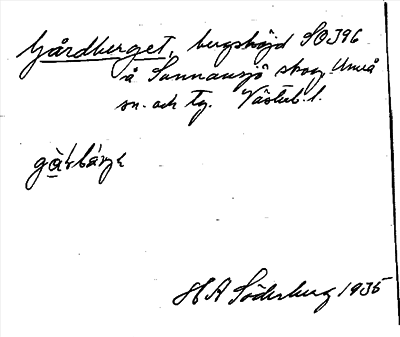 Gårdberget, bergshöjd SO I 96
å Sunnansjö skog Umeå
sn. och tg. Västerb. l.
H A Söderberg 1935